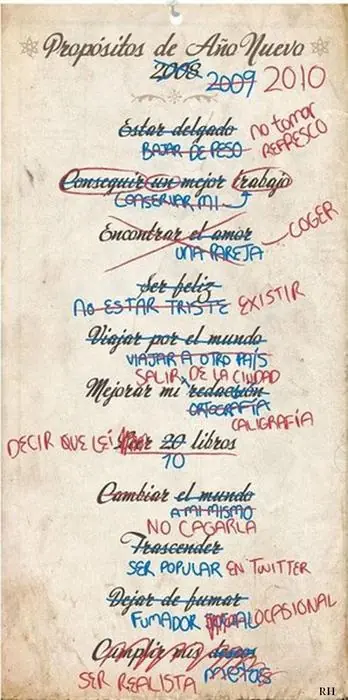 Propósitos de Año Nuevo
2008 2009 2010
Estar delgado no tomar
BAJAR DE PESO REFRESCO
Conseguir un mejor trabajo
CONSERVAR MI
Encontrar el amor COGER
UNA PAREJA
Ser feliz
NO ESTAR TRISTE EXISTIR
Viajar por el mundo
VIAJAR A OTRO PAÍS
SALIR DE LA CIUDAD
Mejorar mi redacción
ORTOGRAFÍA
CALIGRAFÍA
DECIR QUE LEÍ Leer 20 libros
10
Cambiar el mundo
A MI MISMO
NO CAGARLA
Trascender
SER POPULAR EN TWITTER
Dejar de fumar
FUMADOR OCASIONAL
Cumplir mis deseos
SER REALISTA METAS
RH